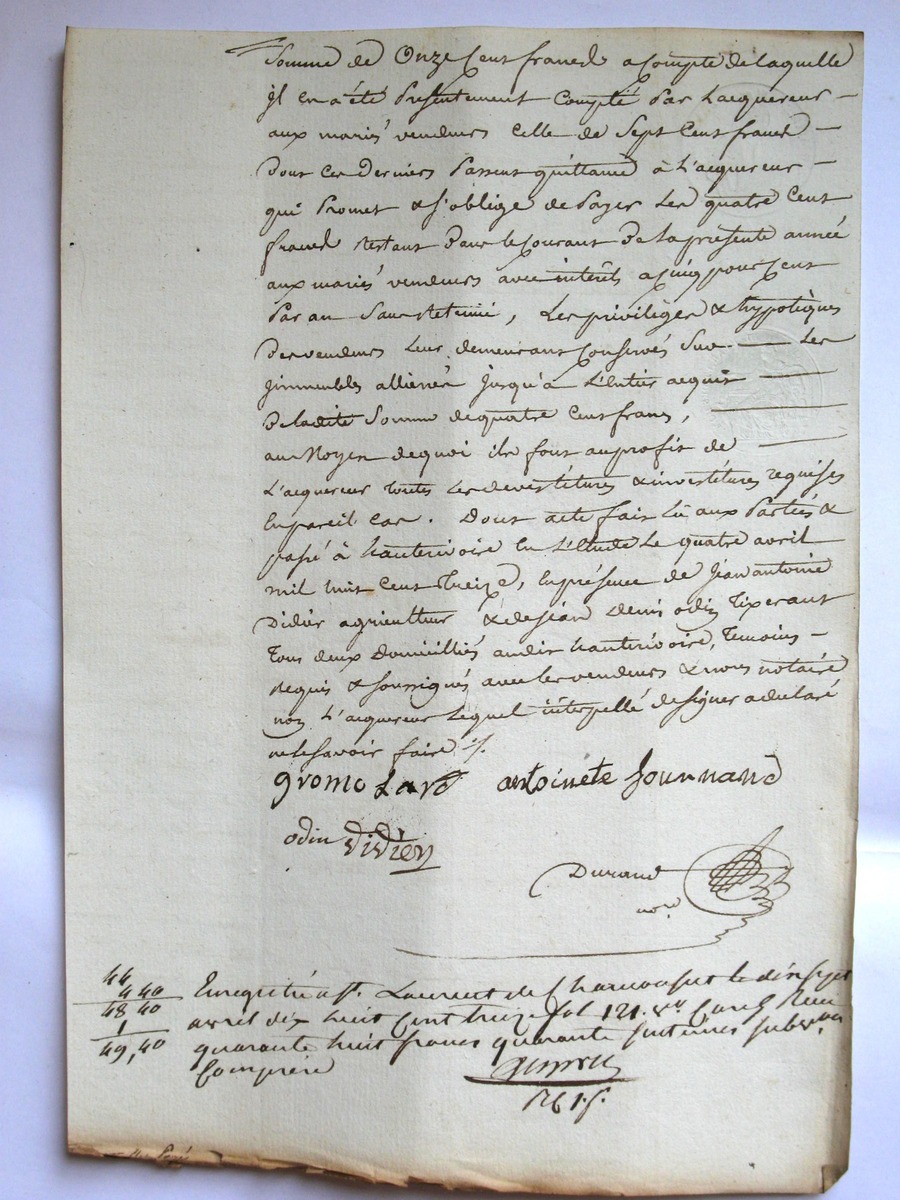 Somme de Onze Cent francs a Compte de Laquelle
il en a été Présentement Compté Par L'acquereur —
aux mariés vendeurs Celle de Sept Cent francs —
Dont Ces Derniers Passent quittance à L'acquereur —
qui Promet & s'oblige de Payer Les quatre Cent
francs Restant Dans le Courant De la présente année
aux mariés vendeurs avec intérêts a Cinq pour Cent
Par an Sans Retenue, Les privilèges & hypotèques
Des vendeurs Leur demeurans Conservés Sur — Les
immeubles alliénés jusqu'a L'entier acquit —
De ladite Somme de quatre Cent francs, —
au Moyen de quoi ils font au profit de —
L'acquereur toutes Les devestitures & investitures requises
En pareil Cas. Dont acte fait Lu aux Parties &
passé à hauterivoire En L'Etude Le quatre avril
mil huit Cent treize, En présence de Jean antoine
Didier agriculteur & de jean Denis odin tixerant
tous deux Domiciliés audit hauterivoire, temoins —
Requis & soussignés avec les vendeurs & nous notaire
non L'acquereur Lequel interpellé de signer a déclaré
ne le savoir faire ./.
gromolard antoinete Journand
odin Didier
Durand
nore
44
4 40
48 40
1
49,40
Enregistré a St. Laurent de Chamousset le dix sept
avril dix huit Cent treize fol 121. vo. Cases Reçu
quarante huit francs quarante Centimes subvon
Comprise